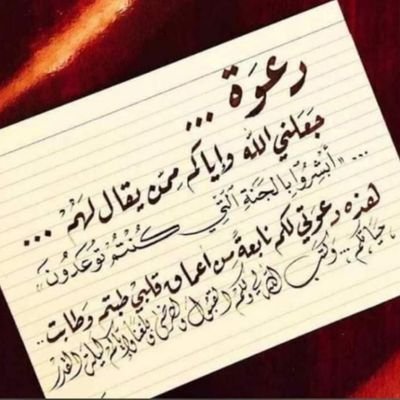 دعوة ...
جَعَلني الله وإياكم ممّن يقال لهَمْ ...
... «أبْشِرُوا بِالجَنةِ الَتّي كُنْتُمْ تُوعَدُونَ»
هَذه دعوتي لكم نابعةً من أعماق قلبي طبتم وطابت ..
حياتكم ... وكتب الله لي ولكم القبول والرضى وبلغنا وإياكم ليلة القدر